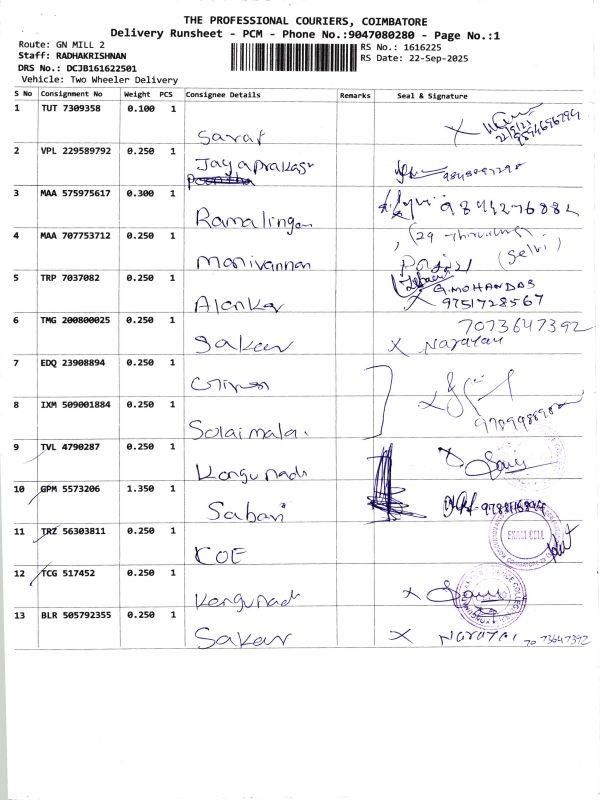 THE PROFESSIONAL COURIERS, COIMBATORE
Delivery Runsheet - PCM - Phone No.:9047080280 - Page No.:1
Route: GN MILL 2
Staff: RADHAKRISHNAN
DRS No.: DCJB161622501
Vehicle: Two Wheeler Delivery
RS No.: 1616225
RS Date: 22-Sep-2025
S No Consignment No Weight PCS Consignee Details Remarks Seal & Signature
1 TUT 7309358 0.100 1
Saraf
2 VPL 229589792 0.250 1
Jayaprakash
3 MAA 575975617 0.300 1
Ramalingam
4 MAA 707753712 0.250 1
Manivannan (Selvi)
5 TRP 7037082 0.250 1 G.MOHANDAS
Alankar X 9751728567
6 TMG 200800025 0.250 1 7073647392
Sakar X Narayan
7 EDQ 23908894 0.250 1
8 IXM 509001884 0.250 1
Solaimalai
9 TVL 4790287 0.250 1
Kongunadu
10 GPM 5573206 1.350 1
Sabari
11 TRZ 56303811 0.250 1 EXAM CELL
COE
12 TCG 517452 0.250 1
Kongunadu
13 BLR 505792355 0.250 1
Sakar X Narayan 7073647392